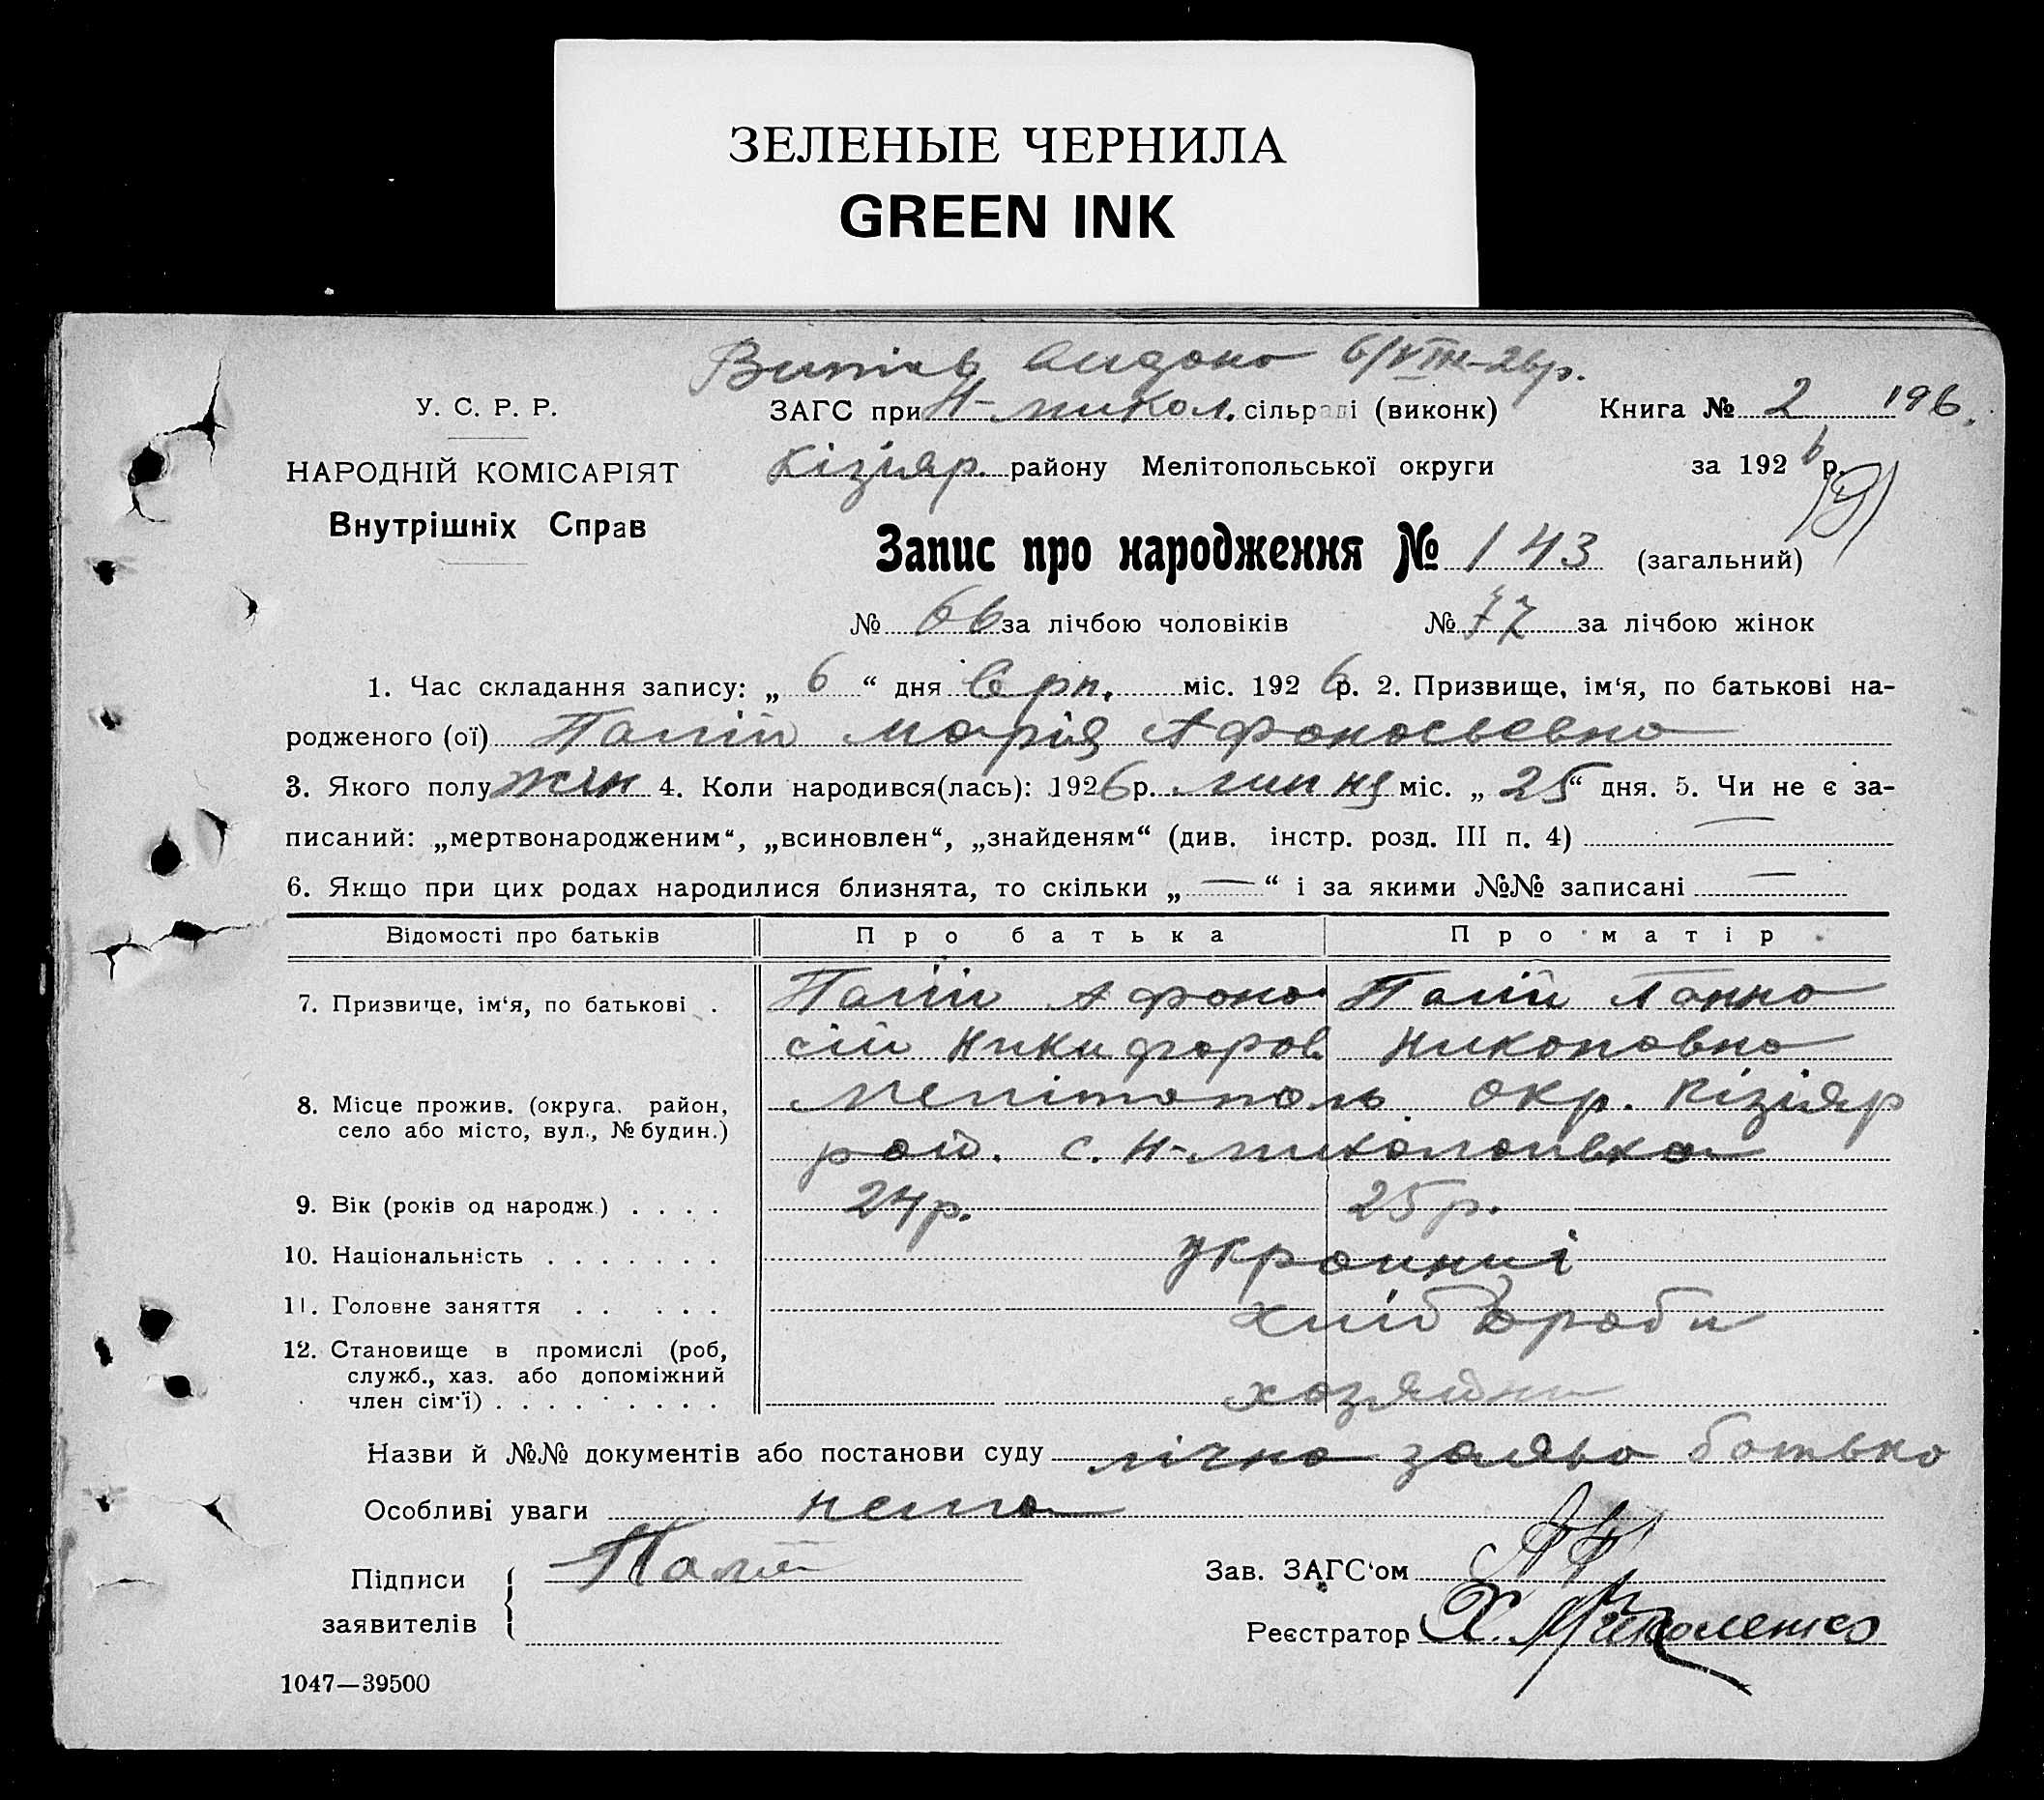 ЗЕЛЕНЫЕ ЧЕРНИЛА
GREEN INK
Витяг видано 6/VIII-26р.
У. С. Р. Р.
ЗАГС при Н-микол. сільраді (виконк) Книга № 2 196.
НАРОДНІЙ КОМІСАРІЯТ
Кізіяр. району Мелітопольської округи за 1926 р.
Внутрішніх Справ
Запис про народження № 143 (загальний)
№ 66 за лічбою чоловіків № 77 за лічбою жінок
1. Час складання запису: „ 6 “ дня серп. міс. 1926 р. 2. Призвище, ім‘я, по батькові на-
родженого (ої) Палій Марія Афонасьевна
3. Якого полу жін 4. Коли народився(лась): 1926 р. липня міс. „ 25 “ дня. 5. Чи не є за-
писаний: „мертвонародженим“, „всиновлен“, „знайденям“ (див. інстр. розд. III п. 4) —
6. Якщо при цих родах народилися близнята, то скільки „ — “ і за якими №№ записані —
Відомості про батьків Про батька Про матір
7. Призвище, ім‘я, по батькові . Палій Афона- Палій Ганна
сій Никифоров Николовна
8. Місце прожив. (округа, район, Мелітополь. окр. Кізіяр
село або місто, вул., № будин.) рай. с. Н-миколаївка
9. Вік (років од народж.) . . . . 24р. 25р.
10. Національність . . . . . . . українці
11. Головне заняття . . . . . хліборoби
12. Становище в промислі (роб,
служб., хаз. або допоміжний
член сім‘ї) . . . . . . . . . хозяйни
Назви й №№ документів або постанови суду лічна заява батька
Особливі уваги нема
Підписи Палій Зав. ЗАГС‘ом
заявителів Реєстратор Х. Миколенко
1047—39500